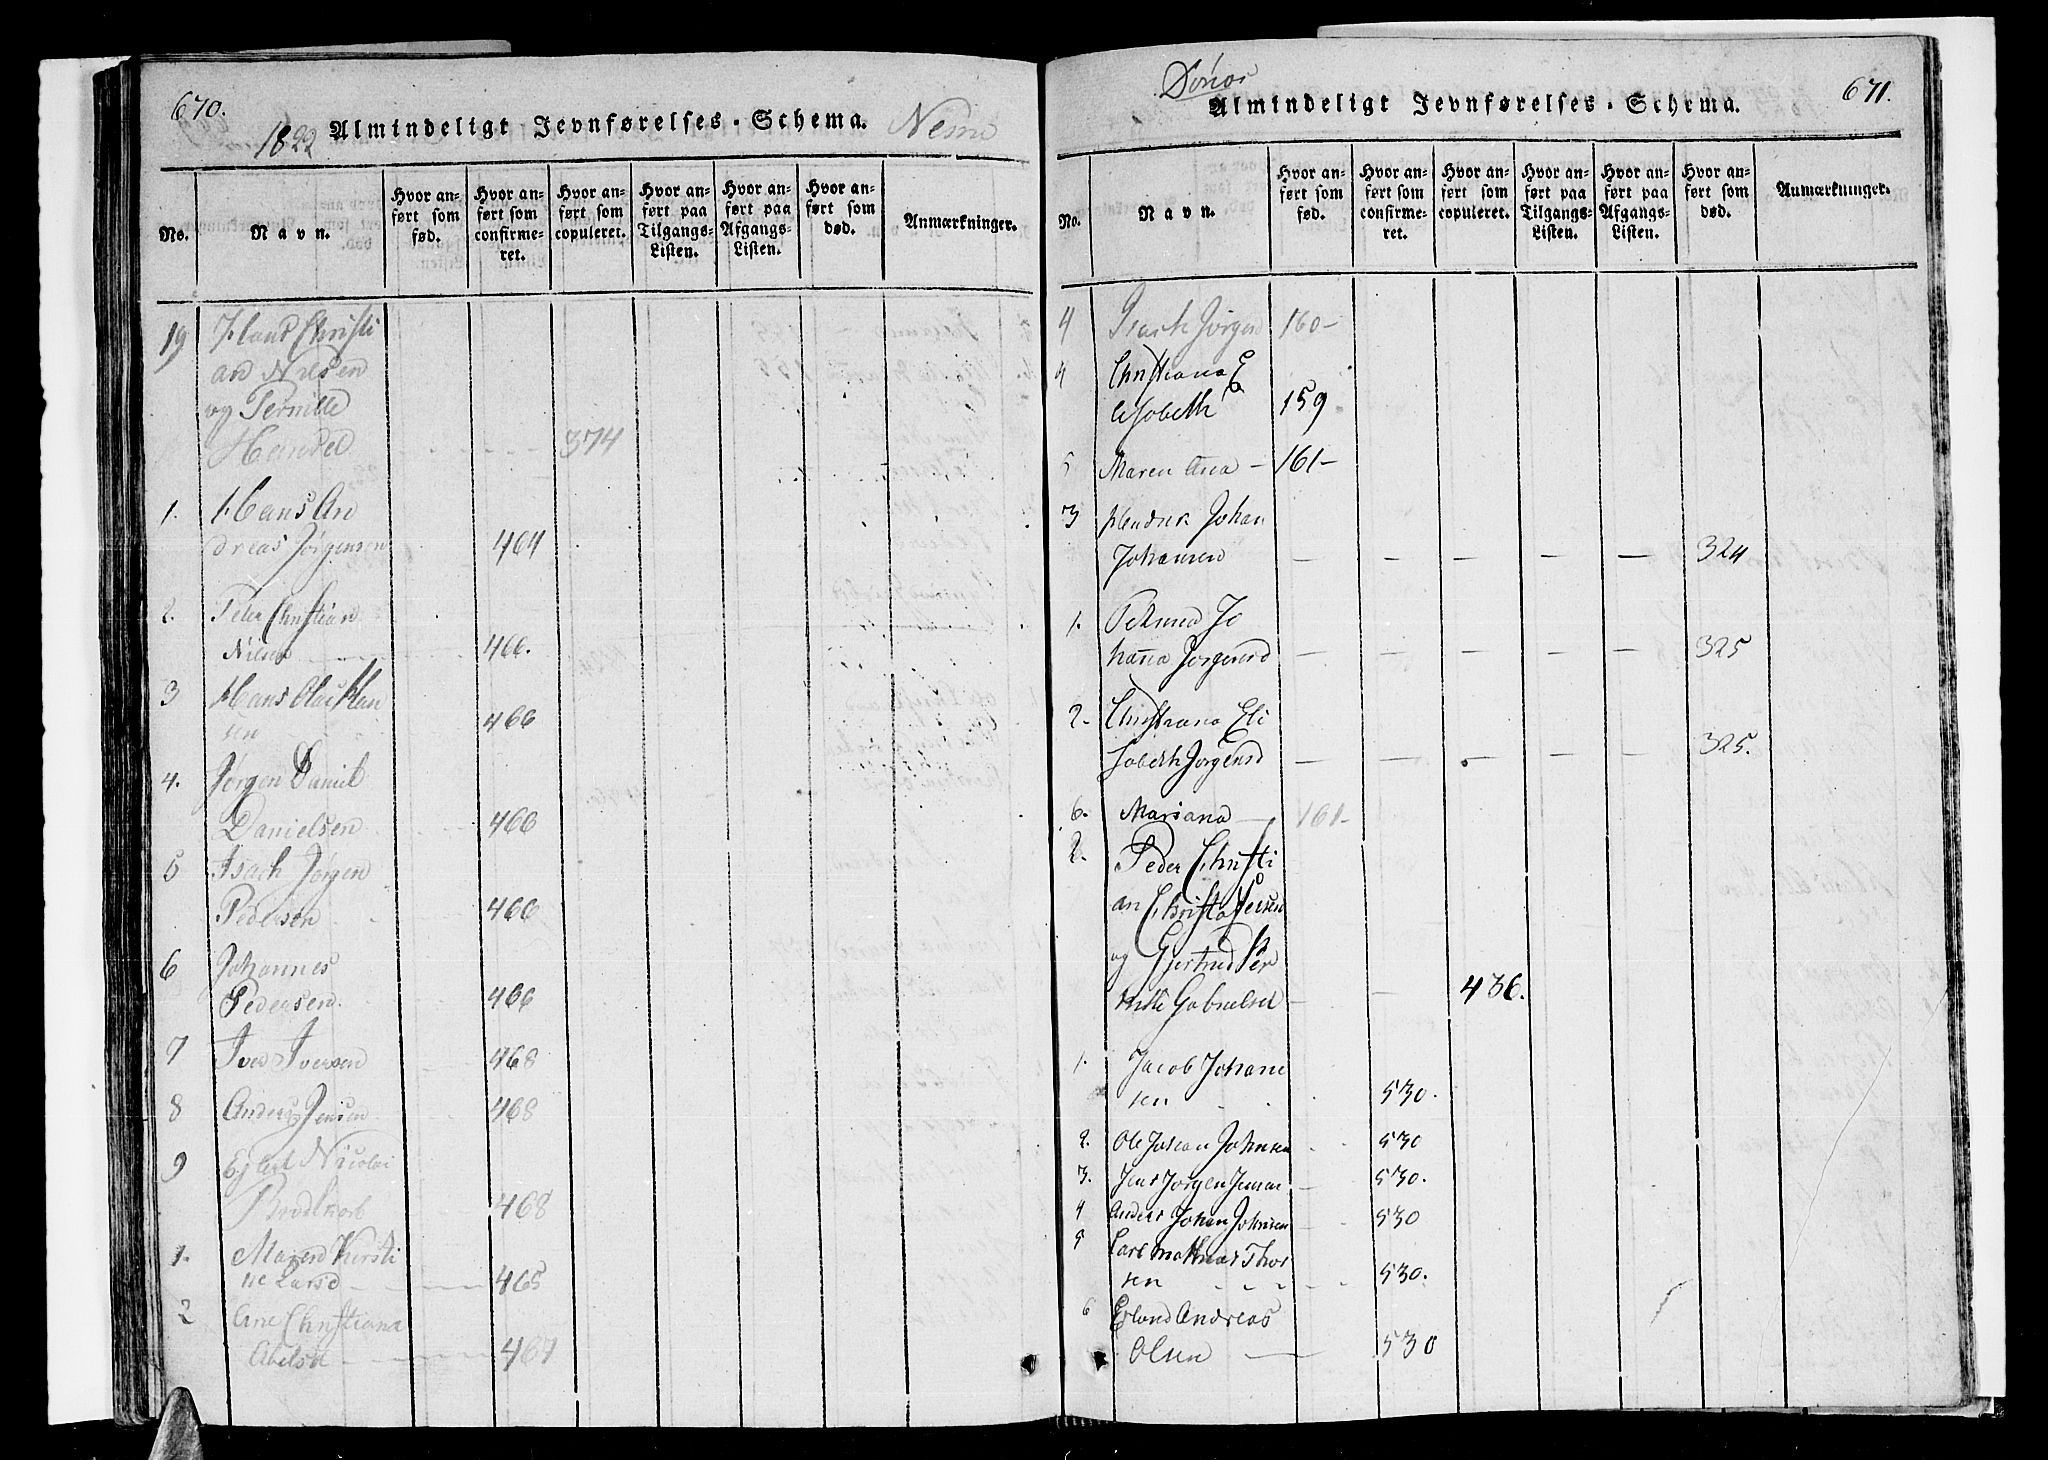 670.
1822
Almindeligt Jevnførelses-Schema.
No.
Navn.
Hvor anført som fød.
Hvor anført som confirmeret.
Hvor anført som copuleret.
Hvor anført paa Tilgangs-Listen.
Hvor anført paa Afgangs-Listen.
Hvor anført som død.
Anmærkninger.
19 Hans Christi
an Nielsen
og Pernille
374
1. Hans An
dreas Jørgensen 464
2. Peter Christian
Nielsen 466.
3 Hans Olai Han
sen 466
4. Jørgen Daniel
Danielsen 466
5 Isach Jørgen
Pedersen 466
6 Johannes
Pedersen 466
7 Iver Iversen 468
8 Anders Jensen 468
9 Ejlert Nicolai
Brodkorb 468
1. Maren Kirsti
ne Larsd 465
2 Ane Christiana
Abelsd 467
Dønøs
671.
Almindeligt Jevnførelses-Schema.
No.
Navn.
Hvor anført som fød.
Hvor anført som confirmeret.
Hvor anført som copuleret.
Hvor anført paa Tilgangs-Listen.
Hvor anført paa Afgangs-Listen.
Hvor anført som død.
Anmærkninger.
4 Isach Jørgen 160-
4 Christiana E
lisabeth 159
5 Maren Ana - 161-
3 Hendrik Johan
Johansen - - - - - 324
1. Petrina Jo
hana Jørgensd - - - - - 325
2- Christiana Eli
sabeth Jørgensd - - - - - 325.
6. Mariana - 161-
2. Peder Christi
an Christophersen
og Gjertrud Per
nille Gabrielsd - - 436.
1. Jacob Johan
sen 530.
2. Ole Johan Johnsen 530
3. Jens Jørgen Jensen - 530.
4 Anders Johan Johnsen 530
5 Carl Mathias Thor
sen 530.
6 Erland Andreas
Olsen - 530